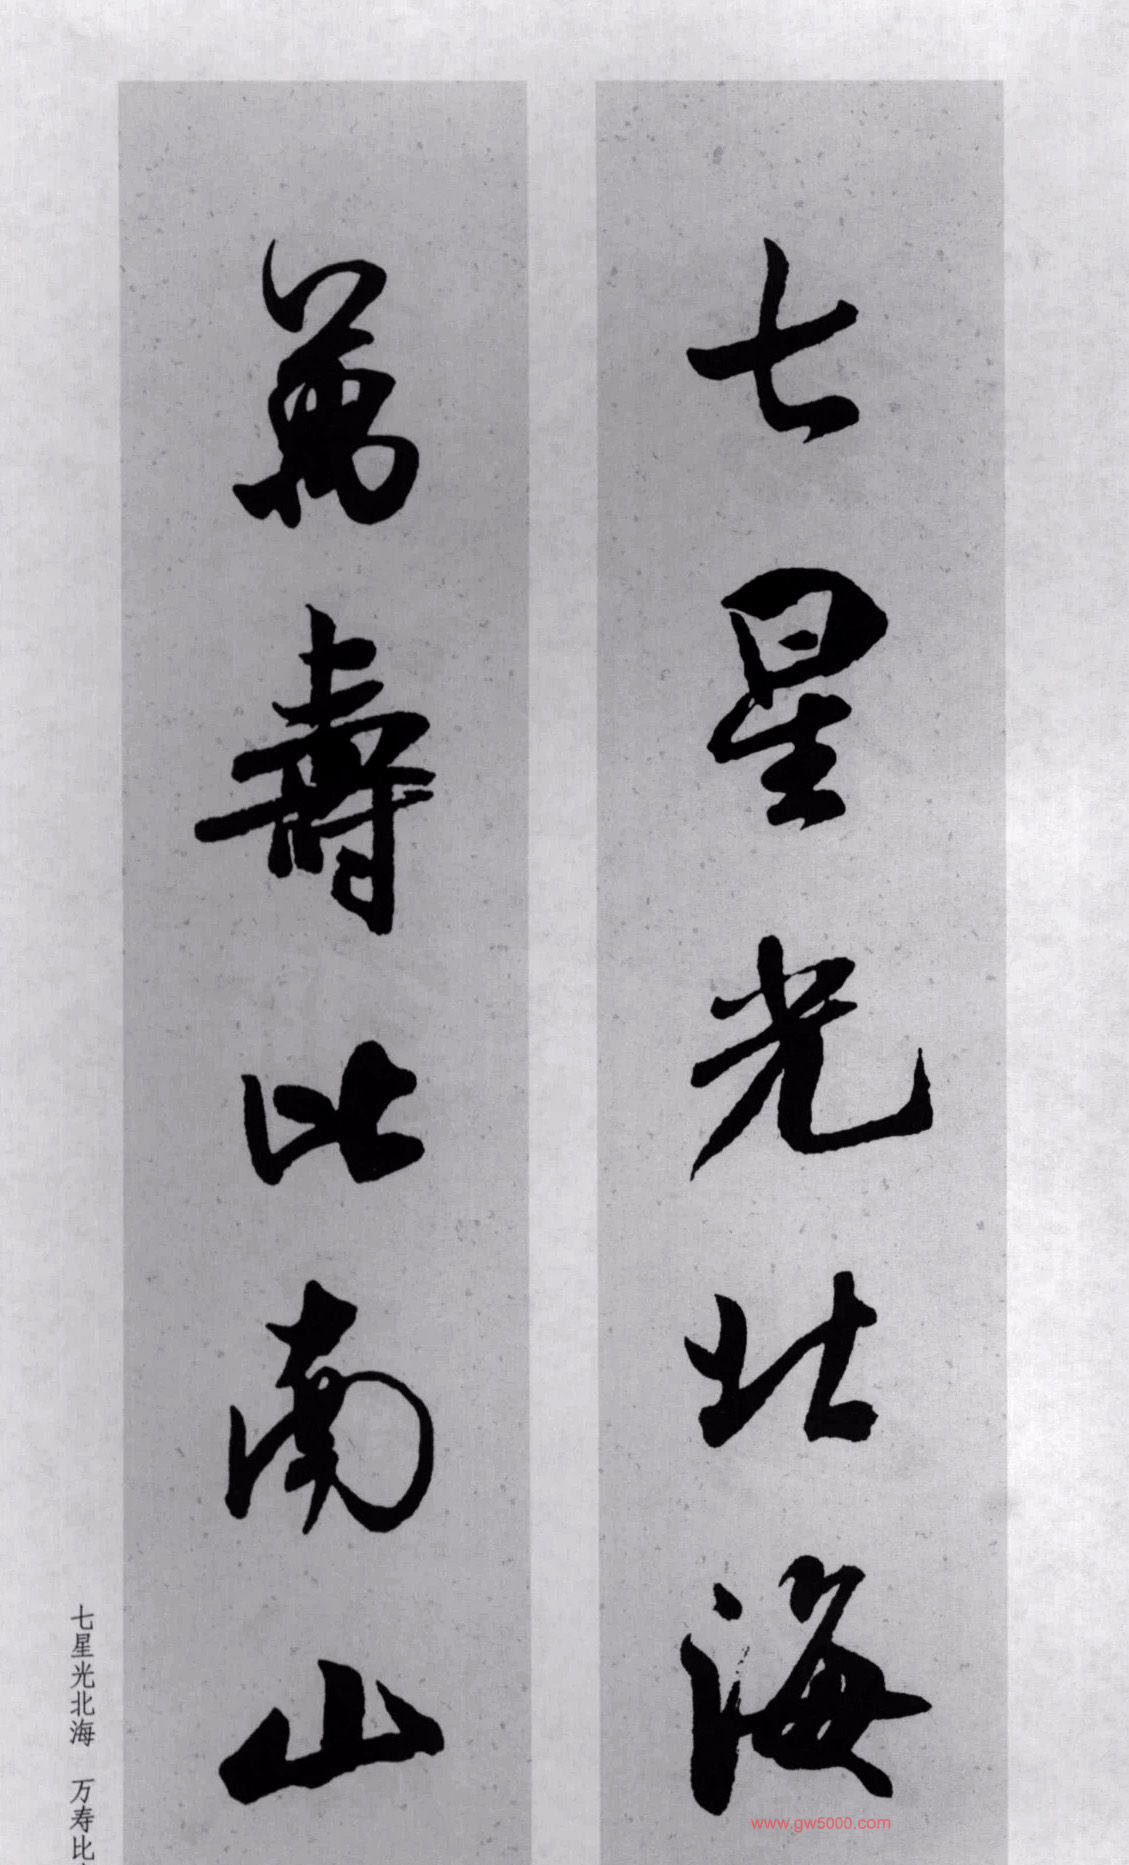 七星光北海
萬壽比南山
七星光北海 万寿比
www.gw5000.com